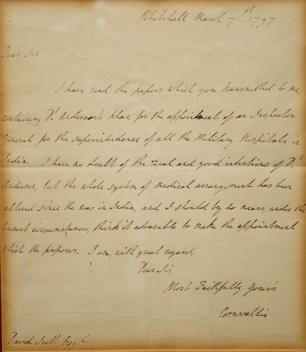 Whitehall March 7th 1797
Dear Sir
I have read the papers which you transmitted to me
containing Dr. Anderson's plan for the appointment of an Inspector
General for the superintendence of all the Military Hospitals in
India. I have no doubt of the zeal and good intentions of Dr.
Anderson, but the whole system of medical arrangement has been
altered since the war in India, and I should by no means, under the
present circumstances, think it advisable to make the appointment
which he proposes. I am, with great regard,
Dear Sir,
Most Faithfully Yours
Cornwallis
David Scott Esq.